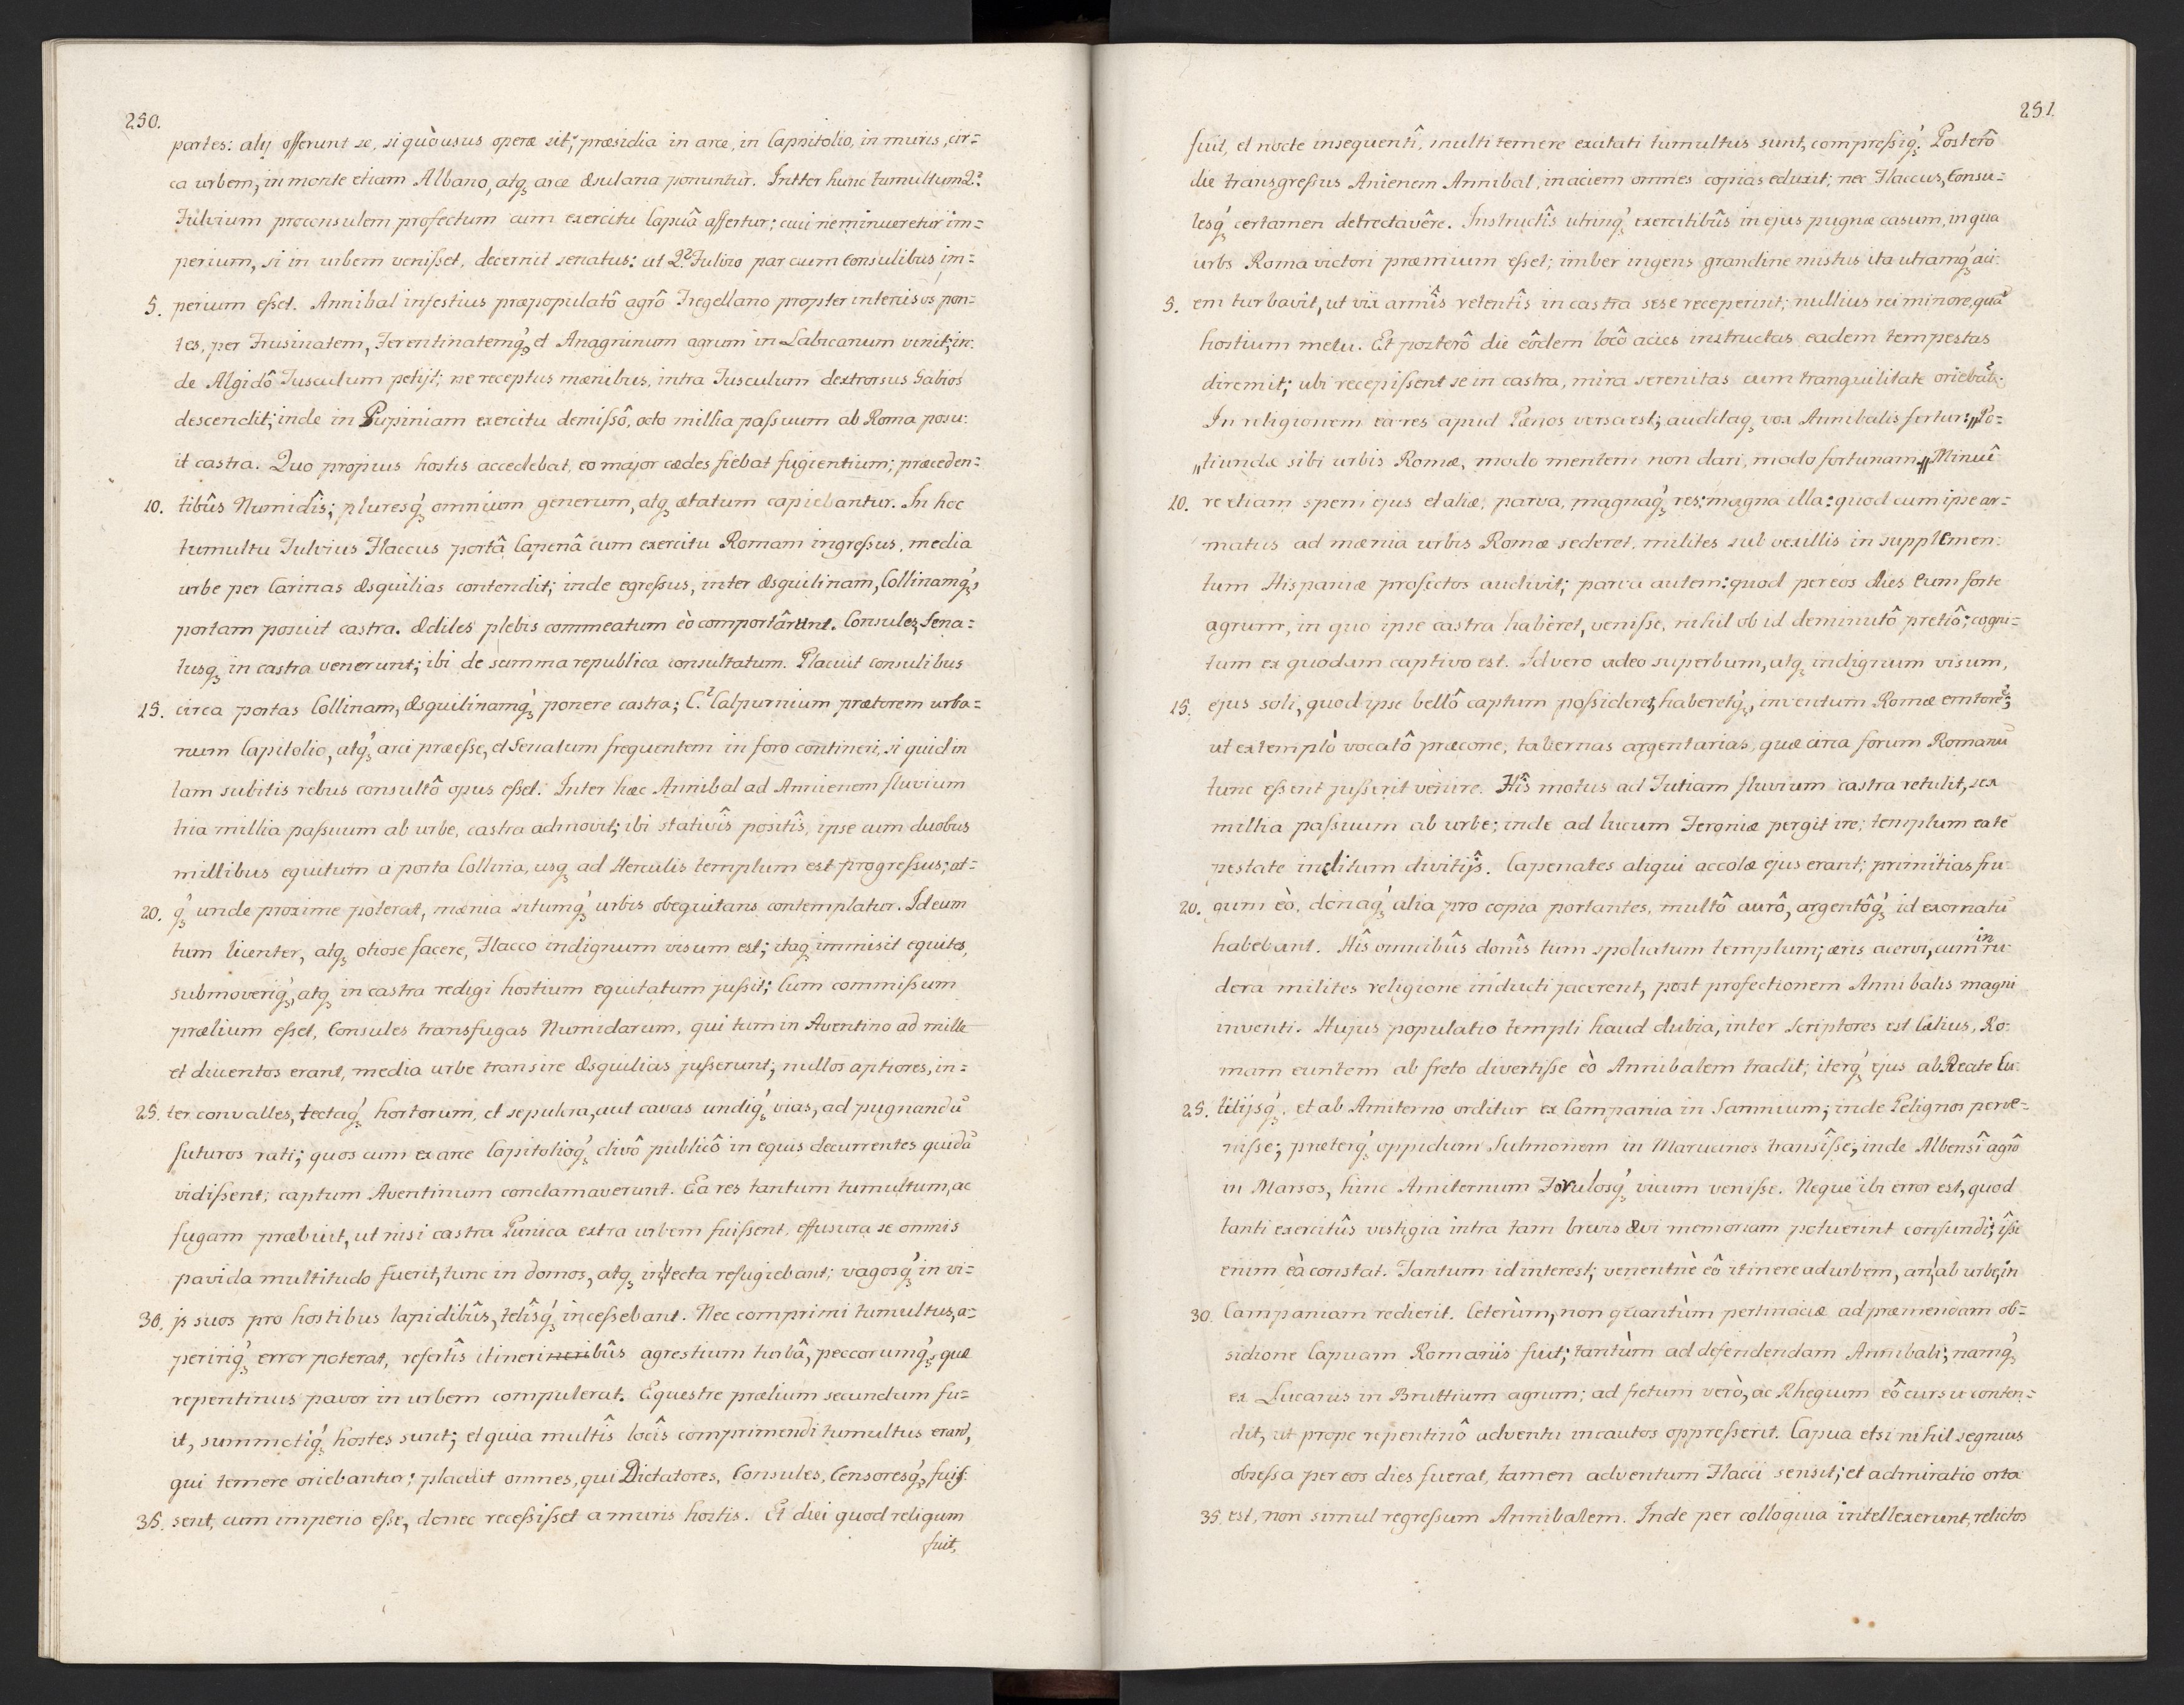 250.
partes: alij offerunt se, si quò usus operæ sit; præsidia in arce, in Cappitolio, in muris, cir=
ca urbem, in monte etiam Albano, atq; arce Æsulana ponuntur. Intter hunc tumultum Q.
Fulvium proconsulem profectum cum exercitu Capuâ affertur; cui ne minueretur im=
perium, si in urbem venißet, decernit senatus: ut Q. Fulvio par cum Consulibus im=
5. perium eßet. Annibal infestius præpopulatô agrô Fregellano propter intenisos pon=
tes, per Frusinatem, Ferentinatemq́;, et Anagninum agrum in Labicanum venit; in:
de Algidô Tusculum petijt; ne receptus mænibus, intra Tusculum dextrorsus Gabios
descendit; inde in Pupiniam exercitu demißô, octo millia paßuum ab Roma posu:
it castra. Quo propius hostis accedebat, eo major cædes fiebat fugientium; præceden=
10. tibûs Numidîs; pluresq́; omnium generum, atq; ætatum capiebantur. In hoc
tumultu Fulvius Flaccus portâ Capenâ cum exercitu Romam ingreßus, media
urbe per Carinas Æsquilias contendit; inde egreßus, inter Æsquilinam, Collinamq́;
portam posuit castra. Ædiles plebis commeatum èo comportârunt. Consules, Sena=
tusq; in castra venerunt; ibi de summa republica consultatum. Placuit consulibus
15. circa portas Collinam, Æsquilinamq́; ponere castra; C. Calpurnium prætorem urba=
num Capitolio, atq́; arci præeße, et Senatum frequentem in foro contineri, si quid in
tam subitis rebus consultô opus eßet. Inter hæc Annibal ad Annienem fluvium
tria millia paßuum ab urbe, castra admovit; ibi stativîs positîs, ipse cum duobus
millibus equitum a porta Collina, usq; ad Herculis templum est progreßus; at=
20. q́; unde proxime poterat, mænia situmq́; urbis obequitans contemplatur. Id eum
tum licenter, atq; otiose facere, Flacco indignum visum est; itaq; immisit equites,
submoveriq́;, atq; in castra redigi hostium equitatum jußit; Cum commißum
prælium eßet, Consules transfugas Numidarum, qui tum in Aventino ad mille
et ducentos erant, media urbe transire Æsquilias jußerunt; nullos aptiores, in=
25. ter convalles, tectaq́; hortorum, et sepulcra, aut cavas undiq́; vias, ad pugnandū
futuros rati; quos cum ex arce Capitolioq́; clivô publicô in equis decurrentes quidā
vidißent; captum Aventinum conclamaverunt. Ea res tantum tumultum, ac
fugam præbuit, ut nisi castra Punica extra urbem fuißent, effusura se omnis
pavida multitudo fuerit, tunc in domos, atq; in tecta refugiebant; vagosq́; in vi=
30. js suos pro hostibus lapidibûs, telîsq́; inceßebant. Nec comprimi tumultus, a=
peririq́; error poterat, refertîs itinerineribûs agrestium turbâ, peccorumq́;, quæ
repentinus pavor in urbem compulerat. Equestre prælium secundum fu=
it, summotiq́; hostes sunt; et quia multîs locîs comprimendi tumultus erant,
qui temere oriebantur; placuit omnes, qui Dictatores, Consules, Censoresq́; fuiß:
35. sent, cum imperio eße, donec receßißet a muris hostis. Et diei quod reliqum
fuit,
251.
fuit, et nocte insequentî, multi temere excitati tumultus sunt, compreßiq́;. Posterô
die transgreßus Anienem Annibal, in aciem omnes copias eduxit; nec Flaccus, Consu=
lesq́; certamen detrectavêre. Instructîs utrinq́; exercitibûs in ejus pugnæ casum, in qua
urbs Roma victori præmium eßet; imber ingens grandine mistus ita utramq́; aci:
5. em turbavit, ut vix armîs retentîs in castra sese receperint; nullius rei minore, quā
hostium metu. Et posterô die eôdem locô acies instructas eadem tempestas
diremit; ubi recepißent se in castra, mira serenitas cum tranquilitate oriebāt̃.
In religionem ea res apud Pænos versa est; auditaq; vox Annibalis fertur: „Po=
„tiundæ sibi urbis Romæ, modo mentem non dari, modo fortunam„ Minuê
10. re etiam spem ejus et aliæ, parva, magnaq́; res: magna illa: quod cum ipse ar=
matus ad mænia urbis Romæ sederet, milites sub vexillis in supplemen:
tum Hispaniæ profectos audivit; parva autem: quod per eos dies eum forte
agrum, in quo ipse castra habêret, veniße, nihil ob id deminutô pretiô; cogni=
tum ex quodam captivo est. Id vero adeo superbum, atq; indignum visum,
15. ejus soli, quod ipse bellô captum poßideret, haberetq́;, inventum Romæ emtorē;
ut extemplò vocatô præcone, tabernas argentarias, quæ circa forum Romanū
tunc eßent jußerit vênire. Hîs motus ad Tutiam fluvium castra retulit, sex
millia paßuum ab urbe; inde ad lucum Feroniæ pergit ire; templum ea tē
pestate inclitum divitijs. Capenates aliqui accolæ ejus erant; primitias fru:
20. gum èo, donaq́; alia pro copia portantes, multô aurô, argentôq́; id exornatū
habebant. Hîs omnibûs donîs tum spoliatum templum; æris acervi, cum in ru:
dera milites religione inducti jacerent, post profectionem Annibalis magni
inventi. Hujus populatio templi haud dubia, inter scriptores est Cælius, Ro:
mam euntem ab freto divertiße èo Annibalem tradit; iterq́; ejus ab Reate Cu:
25. tilijsq́;, et ab Amiterno orditur ex Campania in Samnium; inde Pelignos perve=
niße; præterq́; oppidum Sulmonem in Marucinos transîße; inde Albensî agrô
in Marsos, hinc Amiternum Forulosq́; vicum veniße. Neque ibi error est, quod
tanti exercitûs vestigia intra tam brevis ævi memoriam potuerint confundi; îße
enim eà constat. Tantum id interest; veneritnè eô itinere ad urbem, an, ab urbe, in
30. Campaniam redierit. Ceterùm, non quantùm pertinaciæ ad præmendam ob=
sidione Capuam Romanis fuit; tantùm ad defendendam Annibali; namq́;
ex Lucanis in Bruttium agrum; ad fretum verò, ac Rhegium eô cursu conten=
dit, ut prope repentinô adventu incautos oppreßerit. Capua etsi nihil segnius
obseßa per eos dies fuerat, tamen adventum Flacci sensit; et admiratio orta
35. est, non simul regreßum Annibalem. Inde per colloquia intellexerunt, relictos